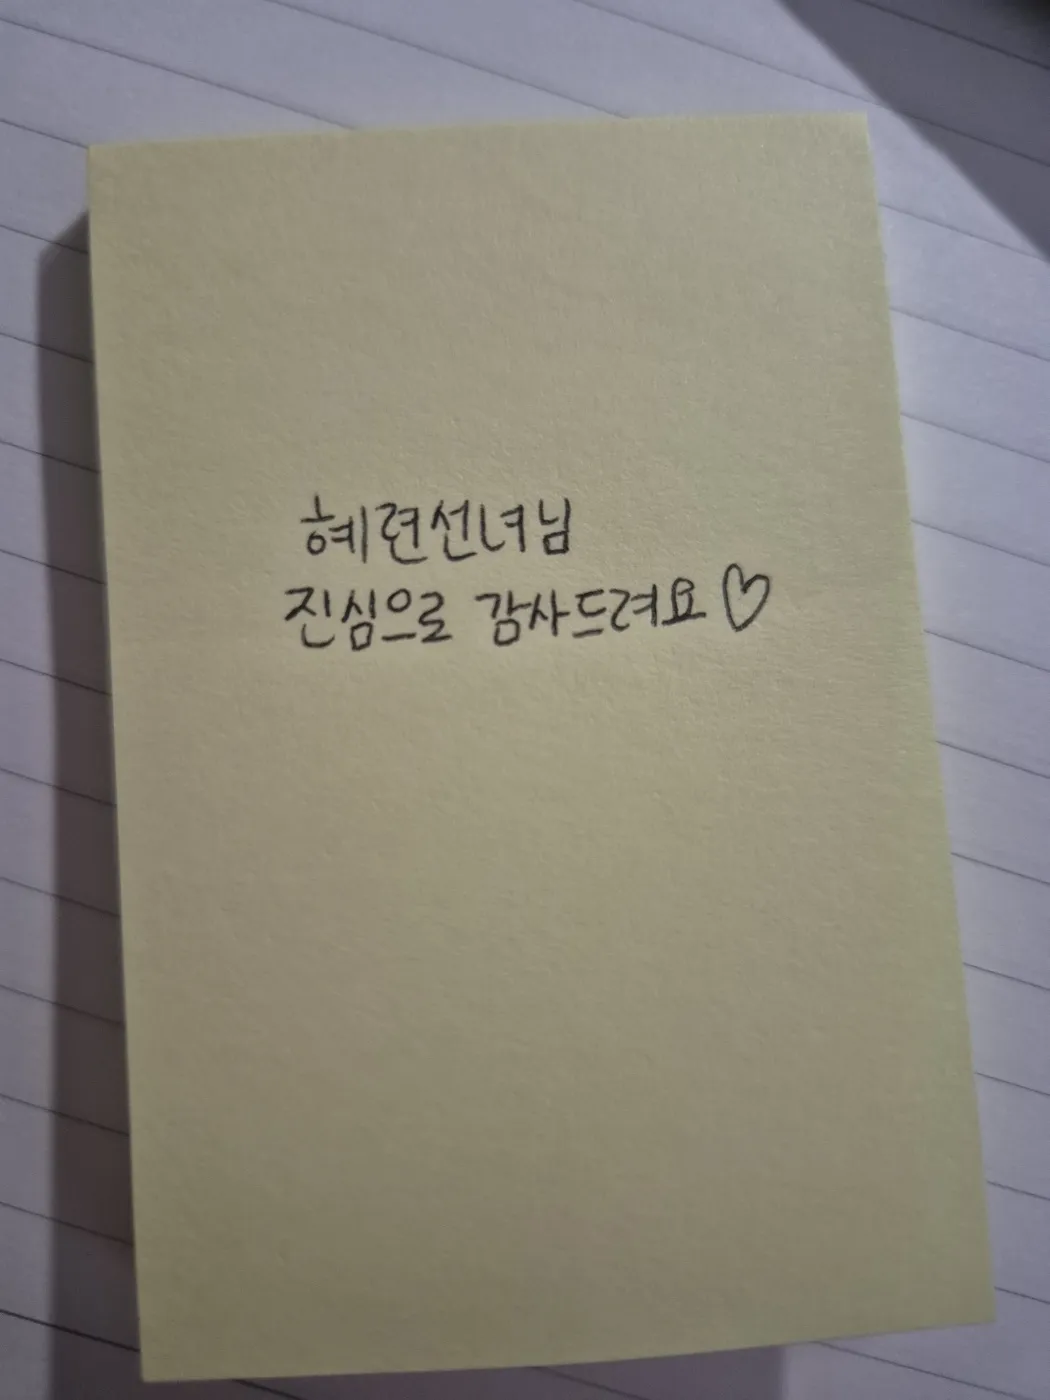 혜련선녀님
진심으로 감사드려요♡